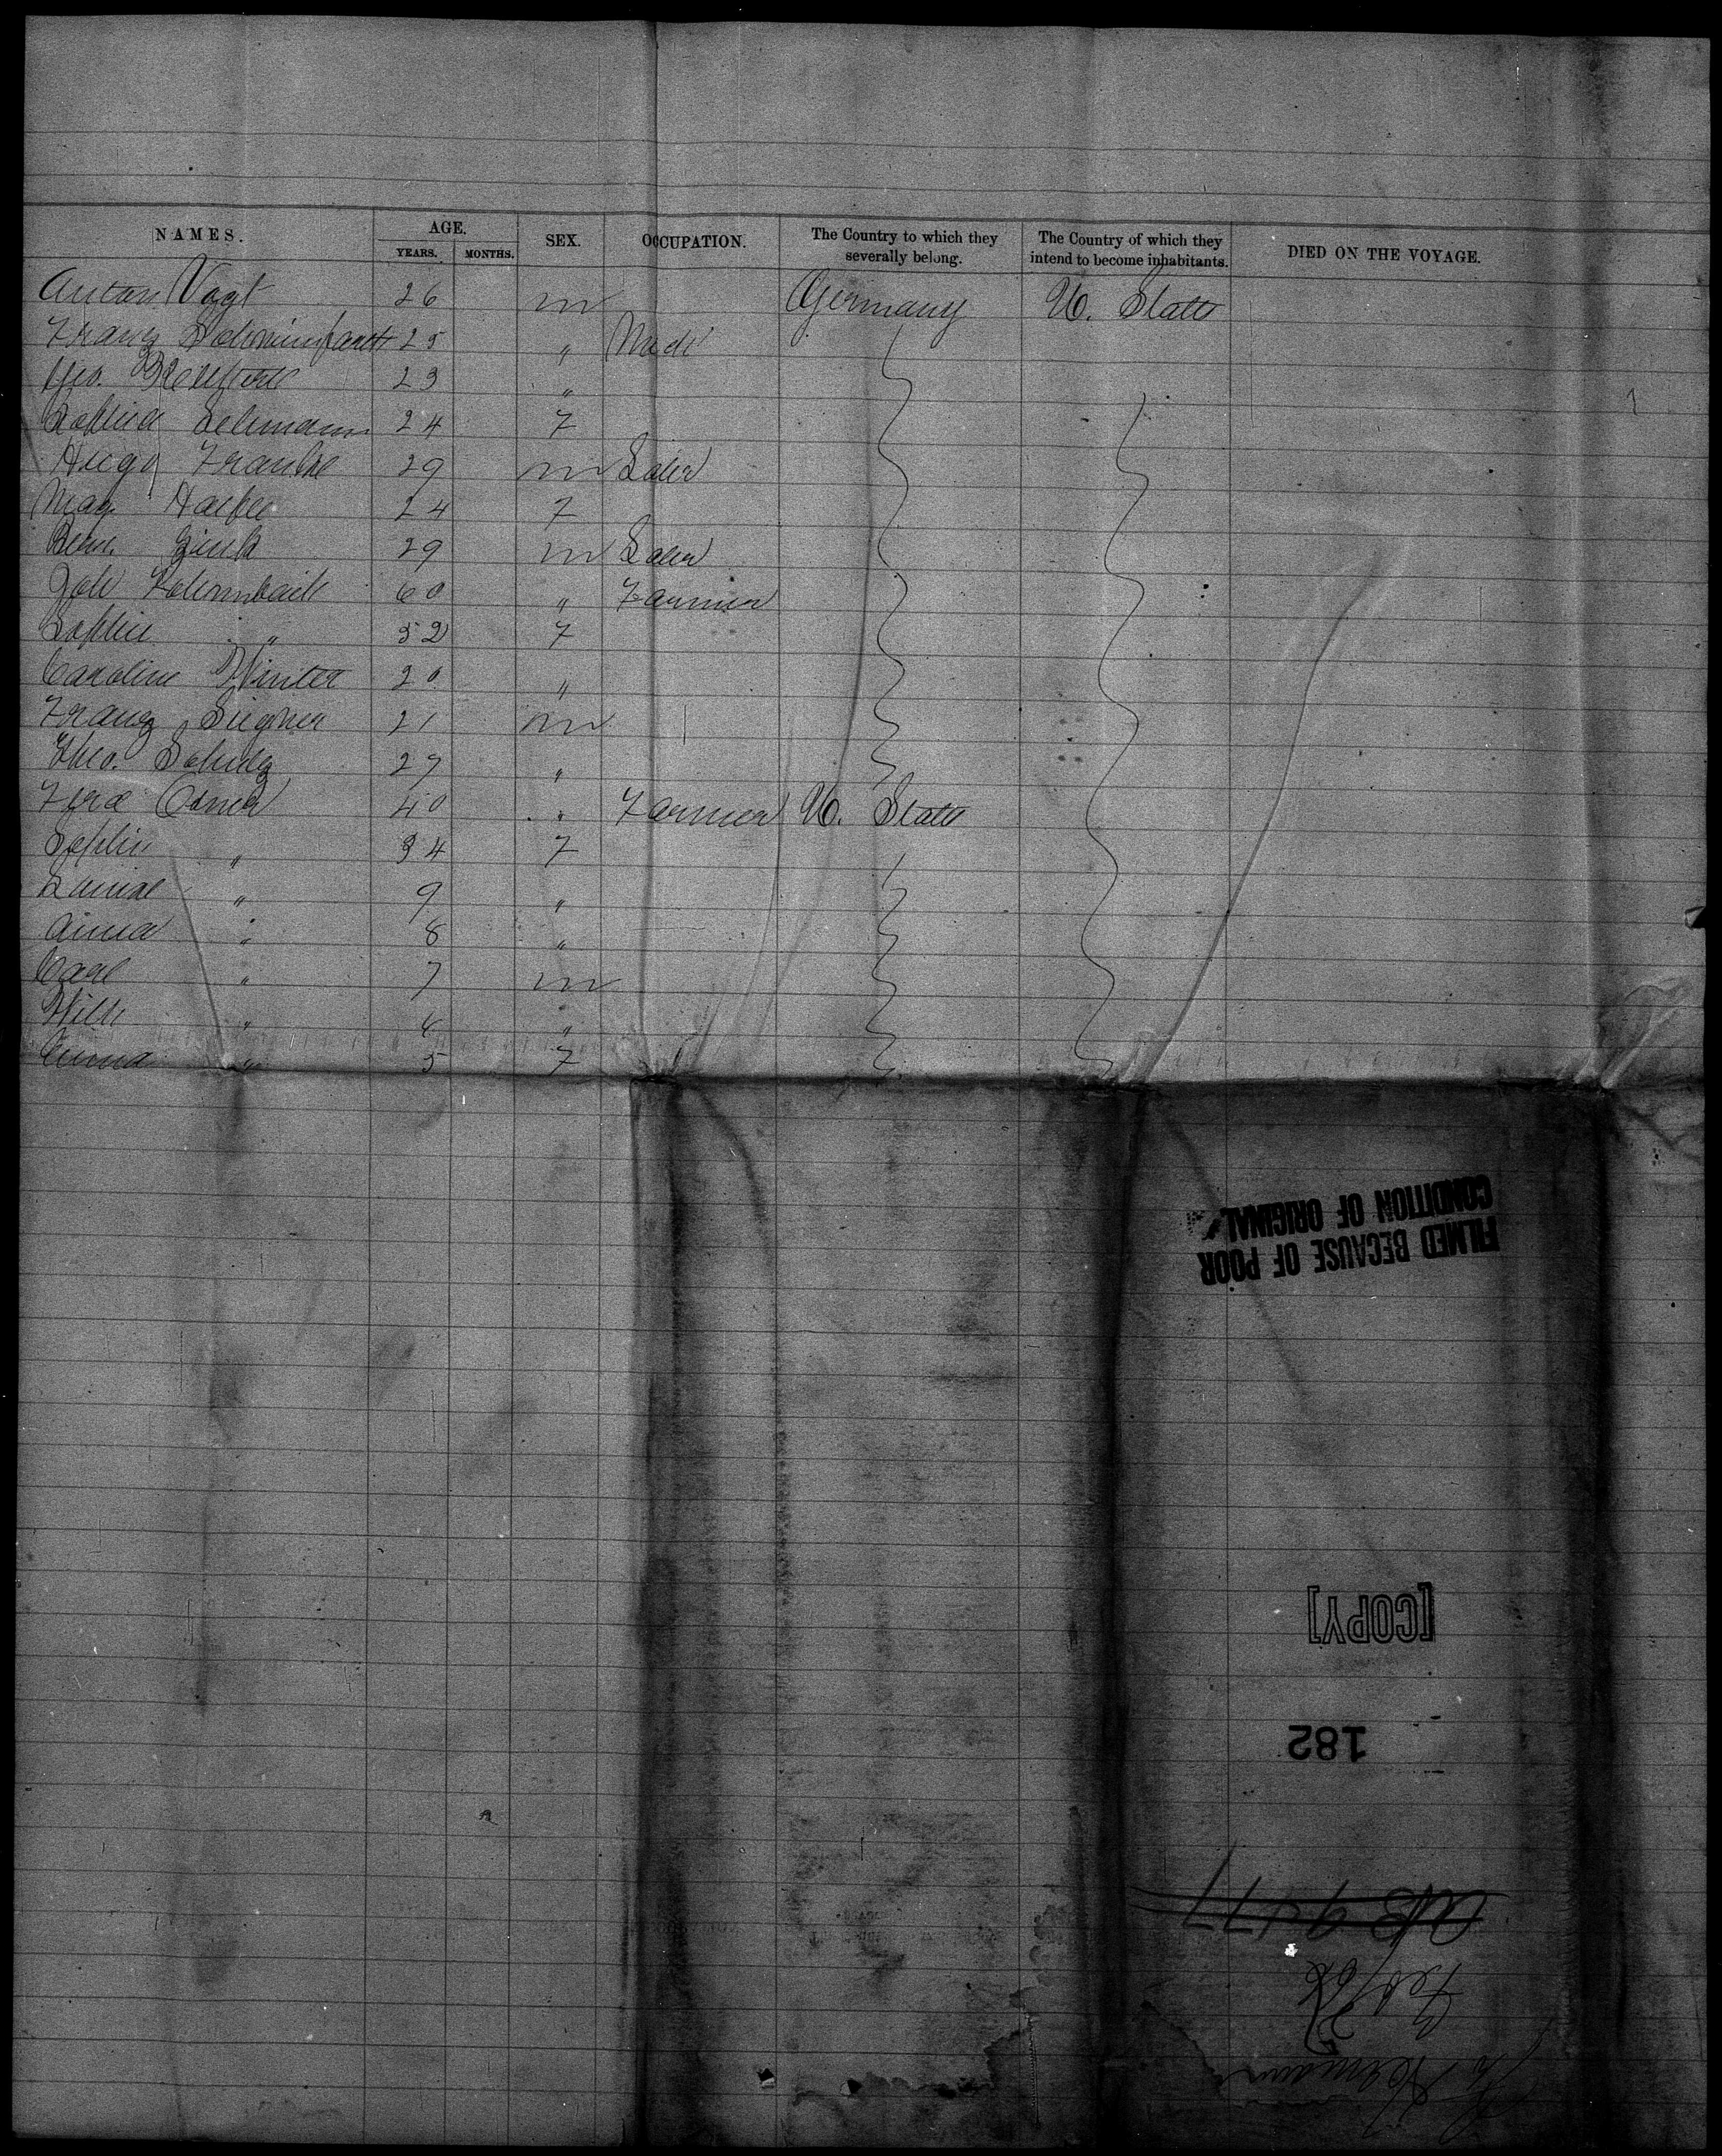 NAMES. AGE. YEARS. MONTHS. SEX. OCCUPATION. The Country to which they severally belong. The Country of which they intend to become inhabitants. DIED ON THE VOYAGE.
Anton Vogt 26 m Germany U. States
Franz 25 "
Geo. 23 "
Sophia Lehmann 24 F
Hugo Franke 29 m Labr
Mag. 24 F
Bern. 29 m Labr
Joh 60 " Farmer
Sophie " 52 F
Caroline Winter 20 "
Franz 21 m
Theo. Schulz 27 "
Ferd 40 " Farmer U. States
Sophie " 34 F
Louise " 9 "
Anna " 8 "
Carl " 7 m
Wilh " 6 "
Emma " 5 F
FILMED BECAUSE OF POOR
CONDITION OF ORIGINAL
[COPY]
182
9477
Feb